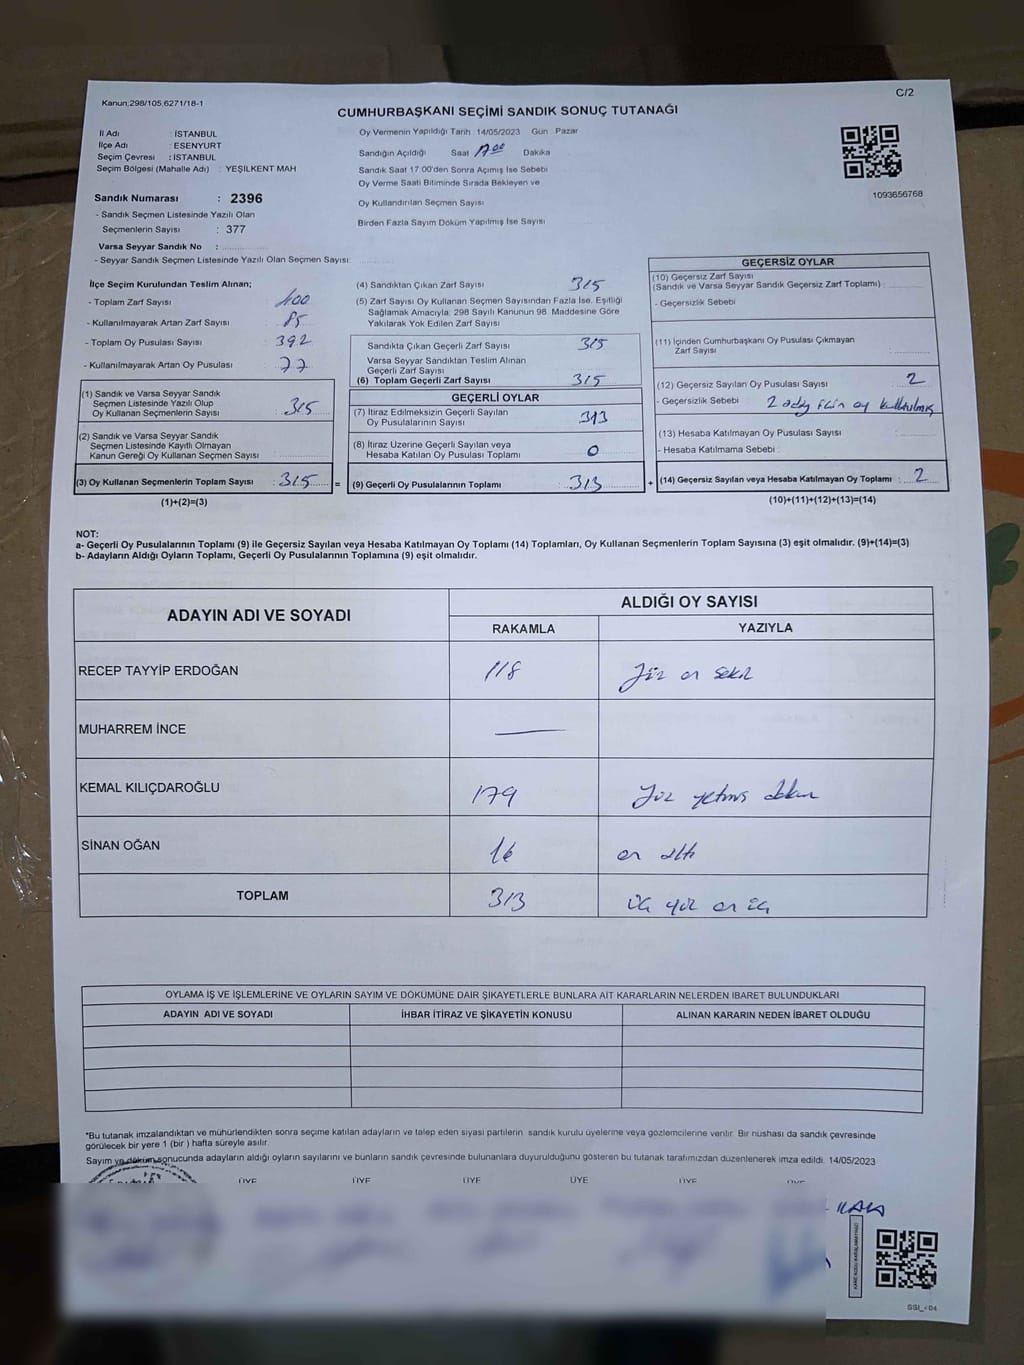 Kanun;298/105,6271/18-1
C/2
CUMHURBAŞKANI SEÇİMİ SANDIK SONUÇ TUTANAĞI
İl Adı : İSTANBUL
İlçe Adı : ESENYURT
Seçim Çevresi : İSTANBUL
Seçim Bölgesi (Mahalle Adı) : YEŞİLKENT MAH
Sandık Numarası : 2396
- Sandık Seçmen Listesinde Yazılı Olan
Seçmenlerin Sayısı : 377
Varsa Seyyar Sandık No :
- Seyyar Sandık Seçmen Listesinde Yazılı Olan Seçmen Sayısı:
Oy Vermenin Yapıldığı Tarih : 14/05/2023 Gün Pazar
Sandığın Açıldığı Saat 17.00 Dakika
Sandık Saat 17:00'den Sonra Açımış İse Sebebi
Oy Verme Saati Bitiminde Sırada Bekleyen ve
Oy Kullandırılan Seçmen Sayısı
Birden Fazla Sayım Döküm Yapılmış İse Sayısı
1093656768
İlçe Seçim Kurulundan Teslim Alınan;
- Toplam Zarf Sayısı : 400
- Kullanılmayarak Artan Zarf Sayısı : 85
- Toplam Oy Pusulası Sayısı : 392
- Kullanılmayarak Artan Oy Pusulası : 77
(1) Sandık ve Varsa Seyyar Sandık
Seçmen Listesinde Yazılı Olup
Oy Kullanan Seçmenlerin Sayısı : 315
(2) Sandık ve Varsa Seyyar Sandık
Seçmen Listesinde Kayıtlı Olmayan
Kanun Gereği Oy Kullanan Seçmen Sayısı :
(3) Oy Kullanan Seçmenlerin Toplam Sayısı : 315 =
(1)+(2)=(3)
(4) Sandıktan Çıkan Zarf Sayısı : 315
(5) Zarf Sayısı Oy Kullanan Seçmen Sayısından Fazla İse, Eşitliği
Sağlamak Amacıyla, 298 Sayılı Kanunun 98. Maddesine Göre
Yakılarak Yok Edilen Zarf Sayısı
Sandıkta Çıkan Geçerli Zarf Sayısı : 315
Varsa Seyyar Sandıktan Teslim Alınan
Geçerli Zarf Sayısı
(6) Toplam Geçerli Zarf Sayısı : 315
GEÇERLİ OYLAR
(7) İtiraz Edilmeksizin Geçerli Sayılan
Oy Pusulalarının Sayısı : 313
(8) İtiraz Üzerine Geçerli Sayılan veya
Hesaba Katılan Oy Pusulası Toplamı : 0
(9) Geçerli Oy Pusulalarının Toplamı : 313 +
GEÇERSİZ OYLAR
(10) Geçersiz Zarf Sayısı
(Sandık ve Varsa Seyyar Sandık Geçersiz Zarf Toplamı) :
- Geçersizlik Sebebi
(11) İçinden Cumhurbaşkanı Oy Pusulası Çıkmayan
Zarf Sayısı
(12) Geçersiz Sayılan Oy Pusulası Sayısı : 2
- Geçersizlik Sebebi : 2 aday için oy kullanılmış
(13) Hesaba Katılmayan Oy Pusulası Sayısı :
- Hesaba Katılmama Sebebi :
(14) Geçersiz Sayılan veya Hesaba Katılmayan Oy Toplamı : 2
(10)+(11)+(12)+(13)=(14)
NOT:
a- Geçerli Oy Pusulalarının Toplamı (9) ile Geçersiz Sayılan veya Hesaba Katılmayan Oy Toplamı (14) Toplamları, Oy Kullanan Seçmenlerin Toplam Sayısına (3) eşit olmalıdır. (9)+(14)=(3)
b- Adayların Aldığı Oyların Toplamı, Geçerli Oy Pusulalarının Toplamına (9) eşit olmalıdır.
ADAYIN ADI VE SOYADI
ALDIĞI OY SAYISI
RAKAMLA YAZIYLA
RECEP TAYYİP ERDOĞAN 118 Yüz on sekiz
MUHARREM İNCE —
KEMAL KILIÇDAROĞLU 179 Yüz yetmiş dokuz
SİNAN OĞAN 16 on altı
TOPLAM 313 üç yüz on üç
OYLAMA İŞ VE İŞLEMLERİNE VE OYLARIN SAYIM VE DÖKÜMÜNE DAİR ŞİKAYETLERLE BUNLARA AİT KARARLARIN NELERDEN İBARET BULUNDUKLARI
ADAYIN ADI VE SOYADI İHBAR İTİRAZ VE ŞİKAYETİN KONUSU ALINAN KARARIN NEDEN İBARET OLDUĞU
*Bu tutanak imzalandıktan ve mühürlendikten sonra seçime katılan adayların ve talep eden siyasi partilerin sandık kurulu üyelerine veya gözlemcilerine verilir. Bir nüshası da sandık çevresinde
görülecek bir yere 1 (bir ) hafta süreyle asılır.
Sayım ve döküm sonucunda adayların aldığı oyların sayılarını ve bunların sandık çevresinde bulunanlara duyurulduğunu gösteren bu tutanak tarafımızdan düzenlenerek imza edildi. 14/05/2023
ÜYE ÜYE ÜYE ÜYE ÜYE